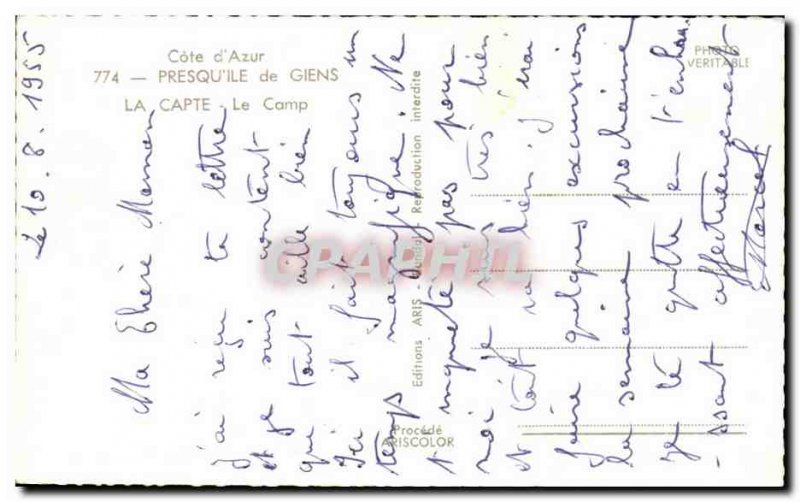 Côte d'Azur
774 — PRESQU'ILE de GIENS
LA CAPTE - Le Camp
PHOTO
VERITABLE
Editions ARIS - Reproduction interdite
Procédé
ARISCOLOR
CPAPHIL
Le 10.8.1955
Ma Chère Maman
j'ai reçu ta lettre
et je suis content
que tout aille bien
Ici il fait toujours un
temps magnifique. Ne
t'inquiète pas pour
moi je suis très bien
et tout va bien. j'irai
faire quelques excursions
la semaine prochaine
je te quitte en t'embra
- ssant affectueusement
Marcel